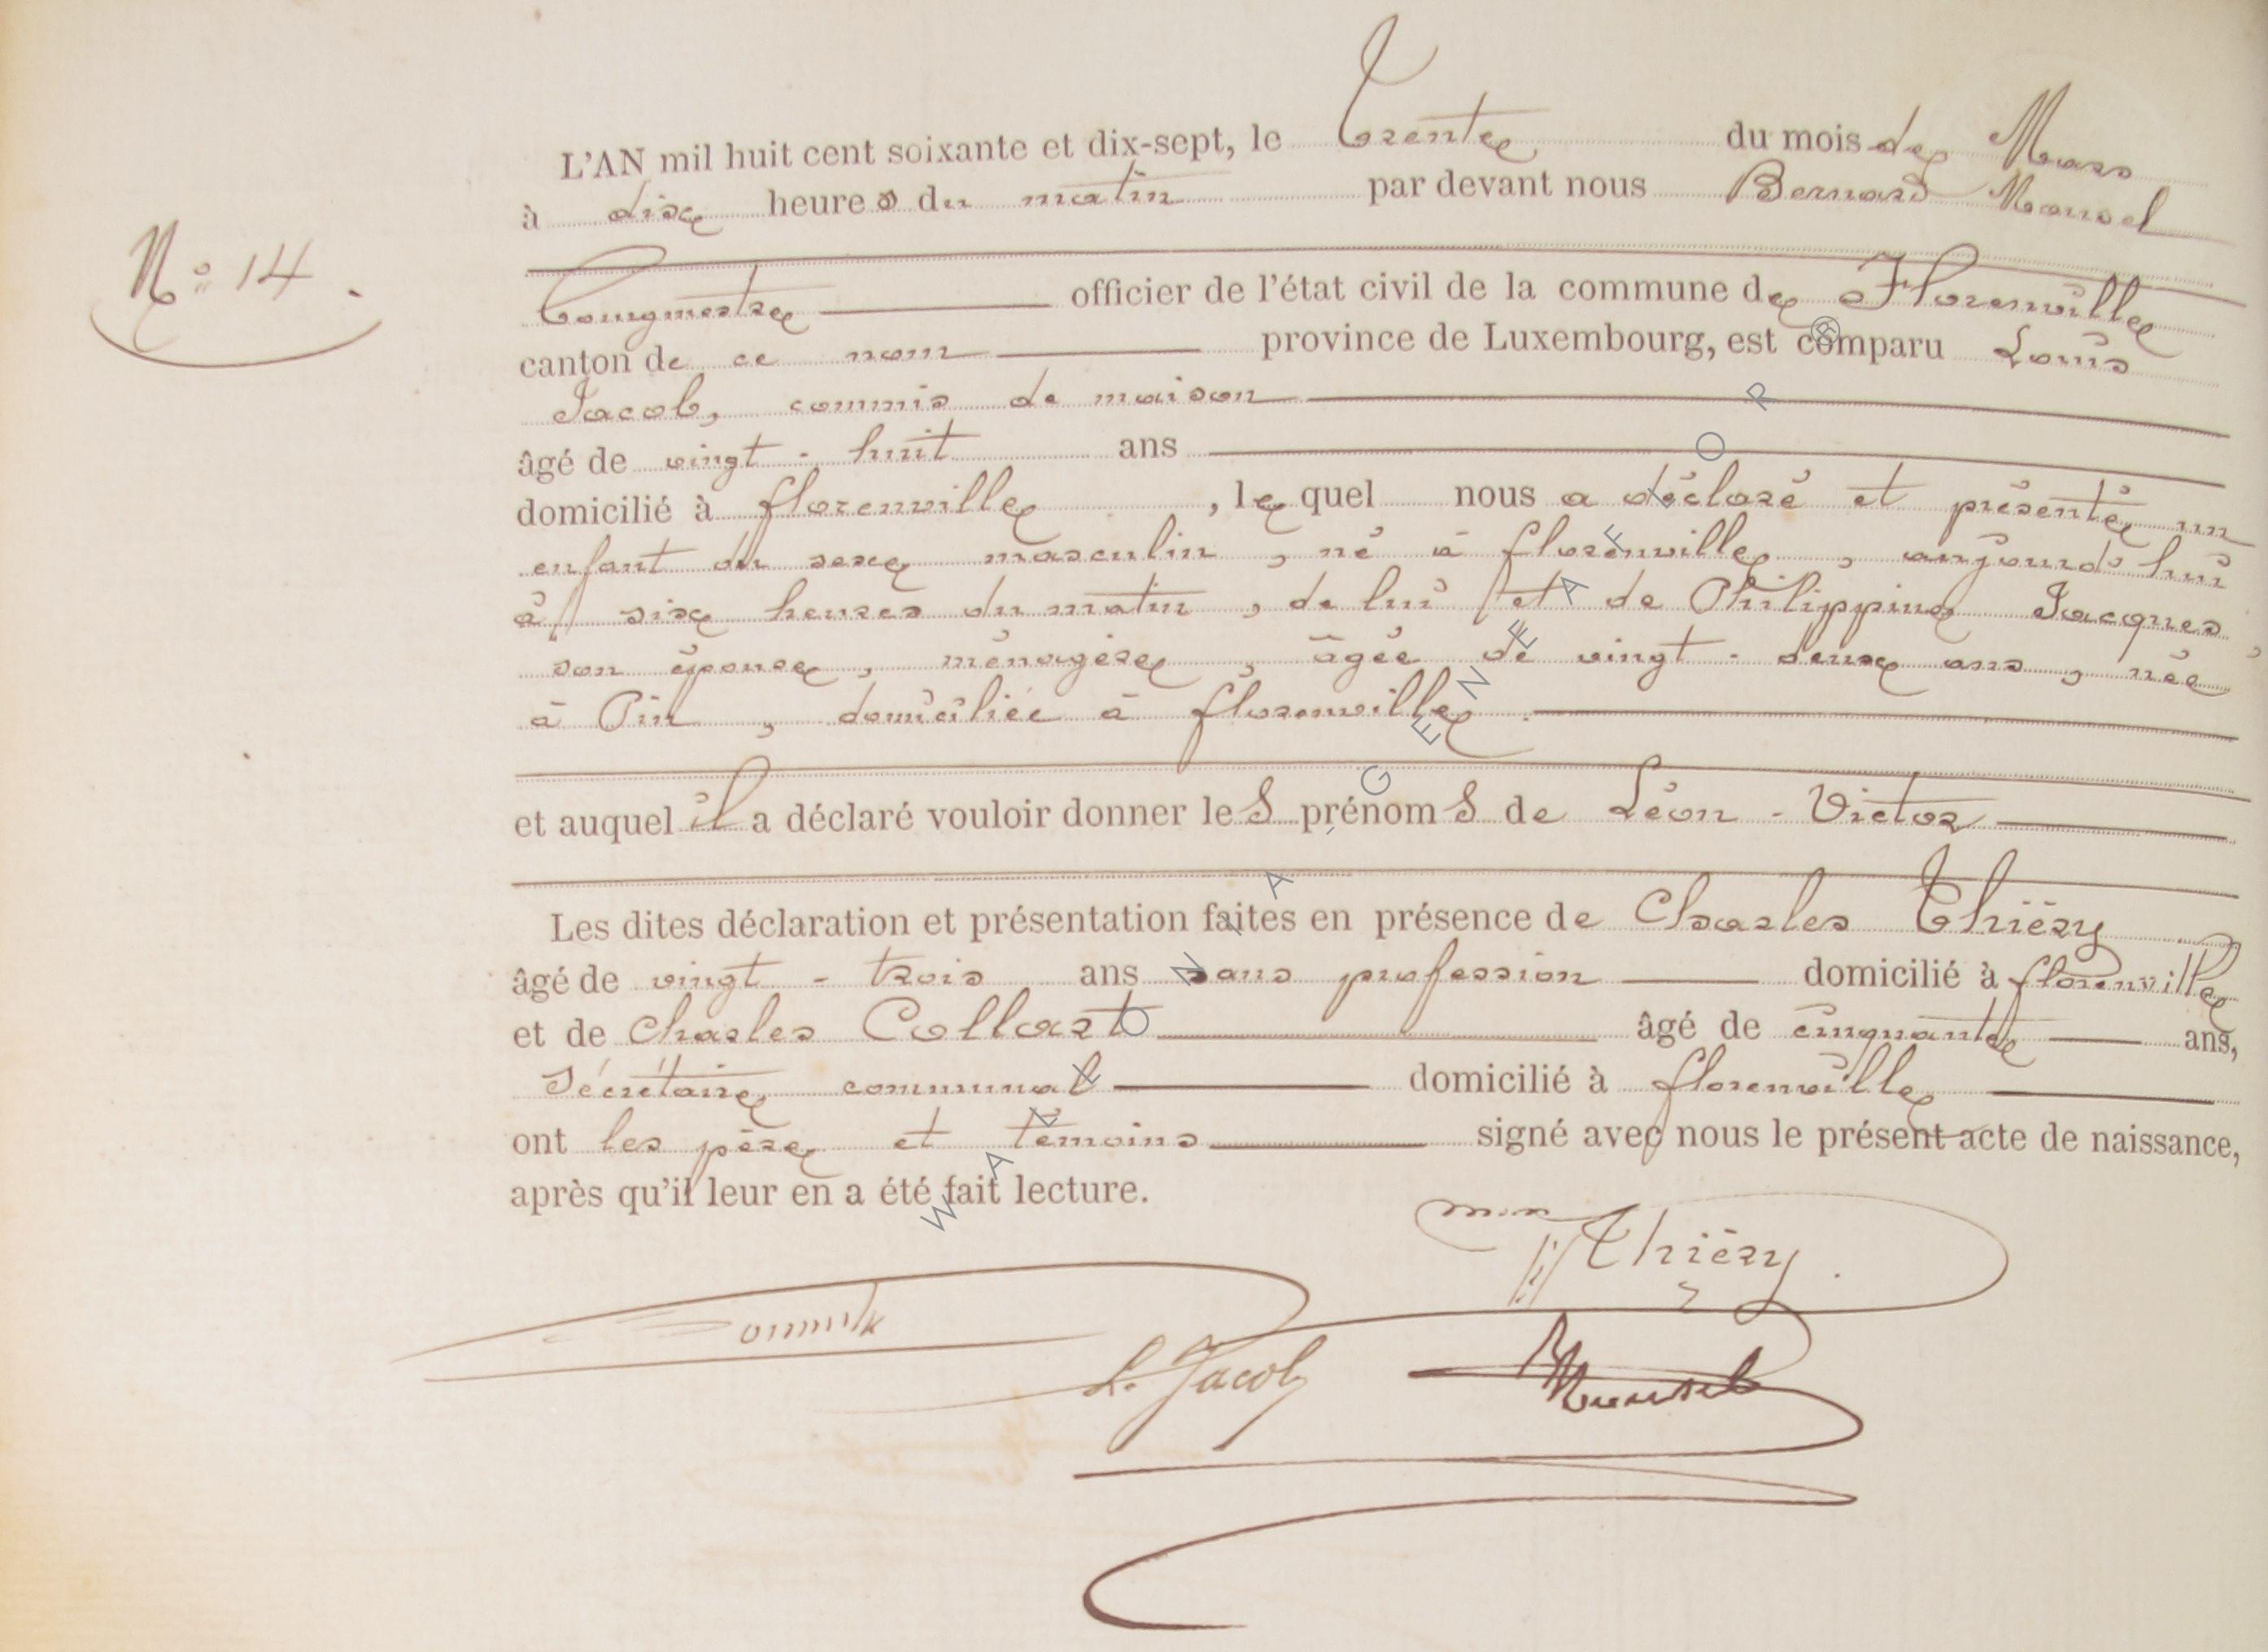 L'AN mil huit cent soixante et dix-sept, le Trente du mois de Mars
à dix heures du matin par devant nous Bernard Mansel
N° 14.
bourgmestre officier de l'état civil de la commune de Florenville
canton de ce nom province de Luxembourg, est comparu Louis
Jacob, commis de maison
âgé de vingt-huit ans
domicilié à florenville, lequel nous a déclaré et présenté un
enfant du sexe masculin, né à florenville, aujourd'hui
à six heures du matin, de lui et de Philippine Jacques
son épouse, ménagère, âgée de vingt-deux ans, née
à Pin, domiciliée à florenville.
et auquel il a déclaré vouloir donner les prénoms de Léon-Victor
Les dites déclaration et présentation faites en présence de Charles Thiéry
âgé de vingt-trois ans sans profession domicilié à florenville
et de Charles Collart âgé de cinquante ans,
Sécrétaire communal domicilié à florenville
ont les père et témoins signé avec nous le présent acte de naissance,
après qu'il leur en a été fait lecture.
Thiéry.
L. Jacob